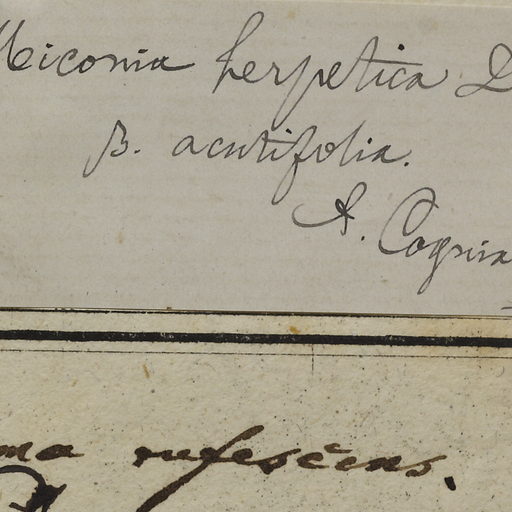 Miconia herpetica D
β. acutifolia.
A. Cognia
ma rufescens.